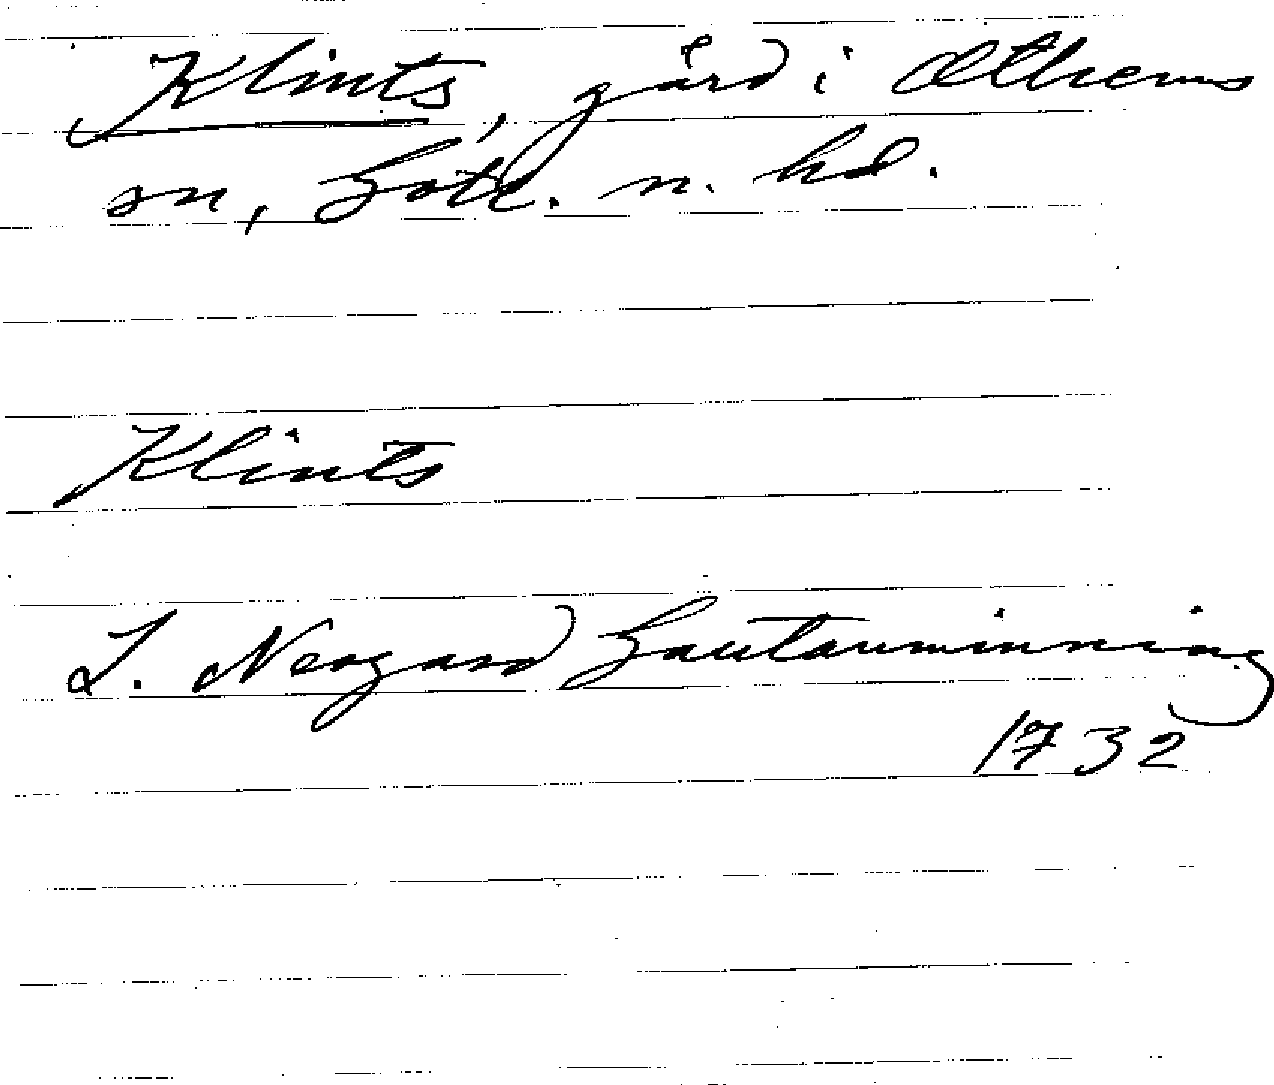 Klints, gård i Othems
sn, Gotl. n. hd.
Klints
L. Neogard Gautauminning
1732